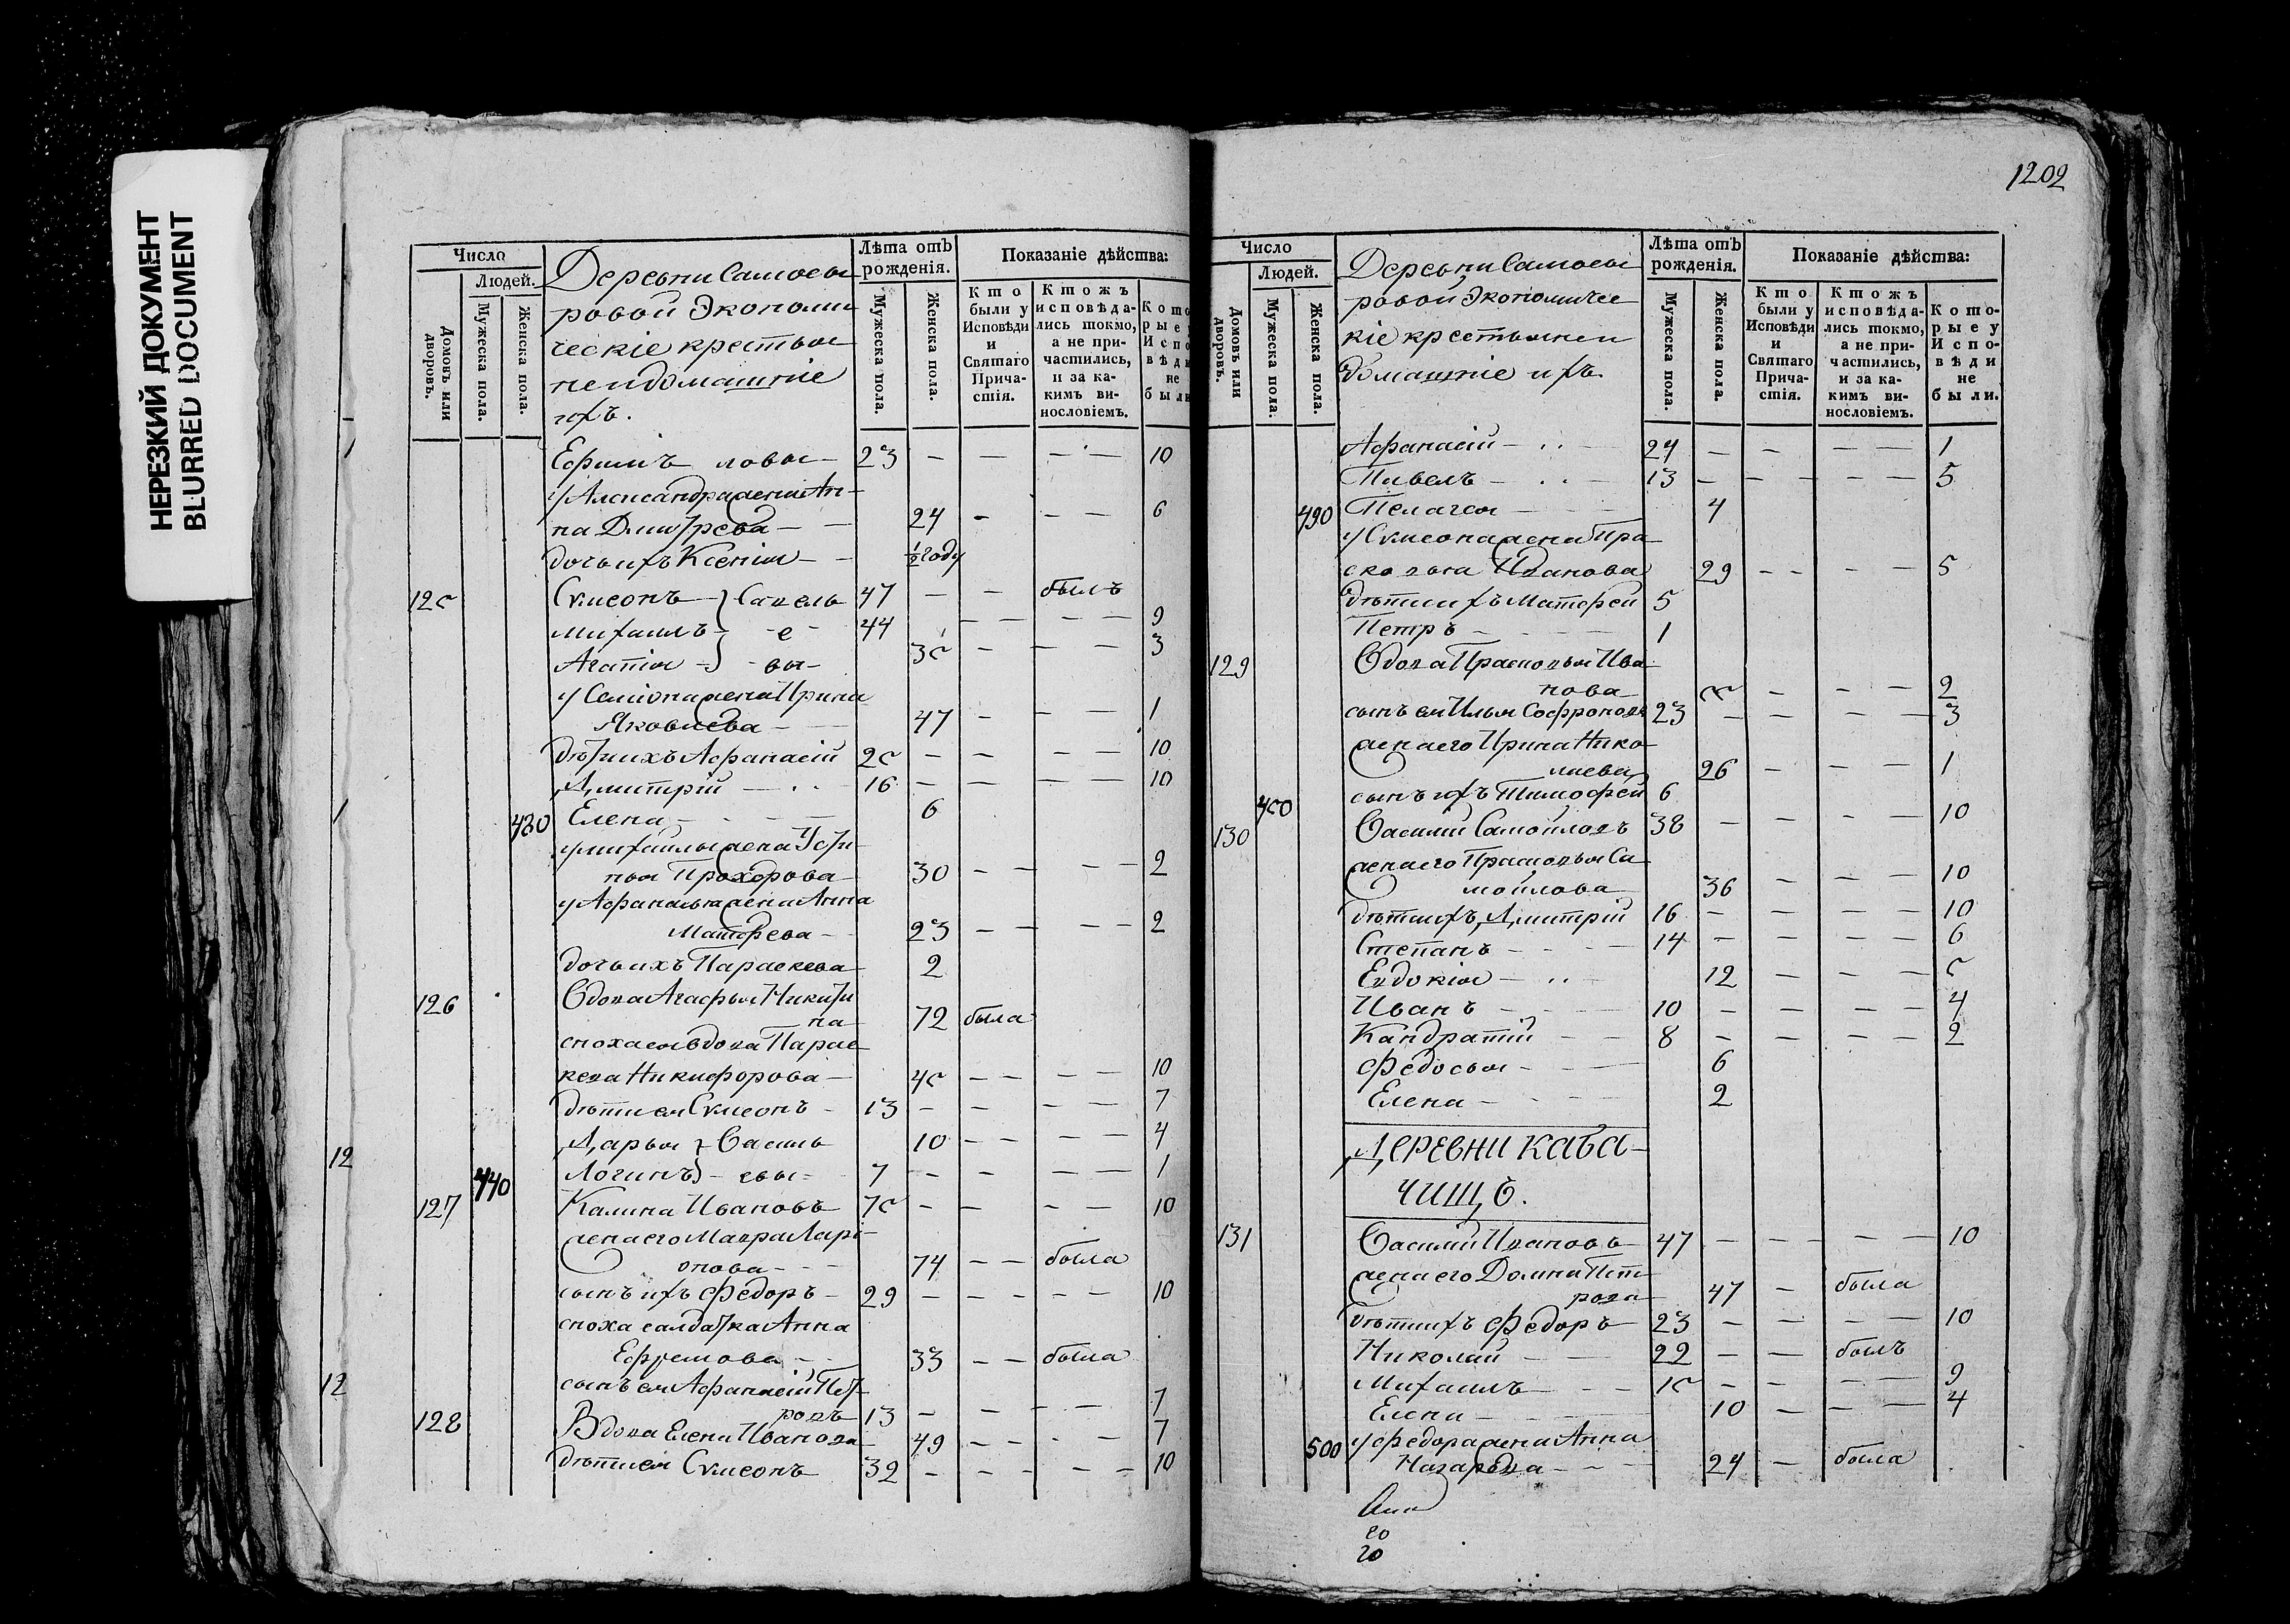 НЕРЕЗКИЙ ДОКУМЕНТ
BLURRED DOCUMENT
Число
Людей.
Домовъ или дворовъ.
Мужеска пола.
Женска пола.
Деревни Самосы
ровой Экономи
ческіе крестья
не и домашніе
ихъ.
Лѣта отъ рожденія.
Мужеска пола.
Женска пола.
Показаніе дѣйства:
Кто были у Исповѣди и Святаго Причастія.
Ктожъ исповѣдались токмо, а не причастились, и за какимъ винословіемъ.
Ефимъ — 23 — — — — 10
у Александра жена Ан-
на Дмитрева — — 24 — — — 6
дочь ихъ Ксенія — — ½ году
125 Сѵмеонъ Савель 47 — — былъ
Михаилъ - е - 44 — — — — 9
Агапія - вы - 35 — — — 3
у Семіона жена Ирина
Яковлева — — 47 — — — 1
дѣти ихъ Афанасій 25 — — — — 10
Димитрій — 16 — — — — 10
430 Елена — — 6
у Михайлы жена Усти-
нья Прохорова 30 — — — — 2
у Афанасья жена Анна
Матфеева — 23 — — — — 2
дочь ихъ Параскева 2
126 Вдова Агафья Никити
на 72 была
сноха ея вдова Парас
кева Никифорова — 45 — — — — 10
дѣти ея Сѵмеонъ - 13 — — — — 7
Дарья Василь 10 — — — — 4
Логинъ - евы - 7 — — — — 1
440
127 Калина Ивановъ 75 — — — — 10
жена его Мавра Лари-
онова - - - 74 — — была
сынъ ихъ Федоръ — 29 — — — — 10
сноха салдатка Анна
Ефремова — 33 — — была
сынъ ея Афанасій Пет-
ровъ 13 — — — — 7
128 Вдова Елена Иванова 49 — — — — 7
дѣти ея Сѵмеонъ 32 — — — — 10
12
12
1202
Число
Людей.
Домовъ или дворовъ.
Мужеска пола.
Женска пола.
Деревни Самосы
ровой Экономичес
кіе крестьяне и
домашніе ихъ.
Лѣта отъ рожденія.
Мужеска пола.
Женска пола.
Показаніе дѣйства:
Кто были у Исповѣди и Святаго Причастія.
Ктожъ исповѣдались токмо, а не причастились, и за какимъ винословіемъ.
Которые у Исповѣди не были.
Афанасій — 24 — — — — 1
Павелъ — 13 — — — — 5
490 Пелагея — 4
у Сѵмеона жена Пра
сковья Иванова 29 — — — — 5
дѣти ихъ Матфей 5
Петръ — 1
129 Вдова Прасковья Ива-
нова — — — — 2
сынъ ея Илья Софроновъ 23 — — — — 3
жена его Ирина Нико-
лаева 26 — — — 1
сынъ ихъ Тимофей 6
450
130 Василій Самойловъ 38 — — — — 10
жена его Прасковья Са-
мойлова 36 — — — 10
дѣти ихъ Димитрій 16 — — — — 10
Степанъ — 14 — — — — 6
Евдокія — 12 — — — 5
Иванъ — 10 — — — — 4
Кандратій — 8 — — — — 2
Федосья — 6
Елена — 2
ДЕРЕВНИ КАБА-
ЧИЩЪ.
131 Василій Ивановъ 47 — — — — 10
жена его Домна Пет-
рова 47 — была
дѣти ихъ Федоръ 23 — — — — 10
Николай — 22 — — былъ
Михаилъ — 15 — — — — 9
Елена — 10 — — — 4
500 у Федора жена Анна
Назарова — 24 — была
20
20